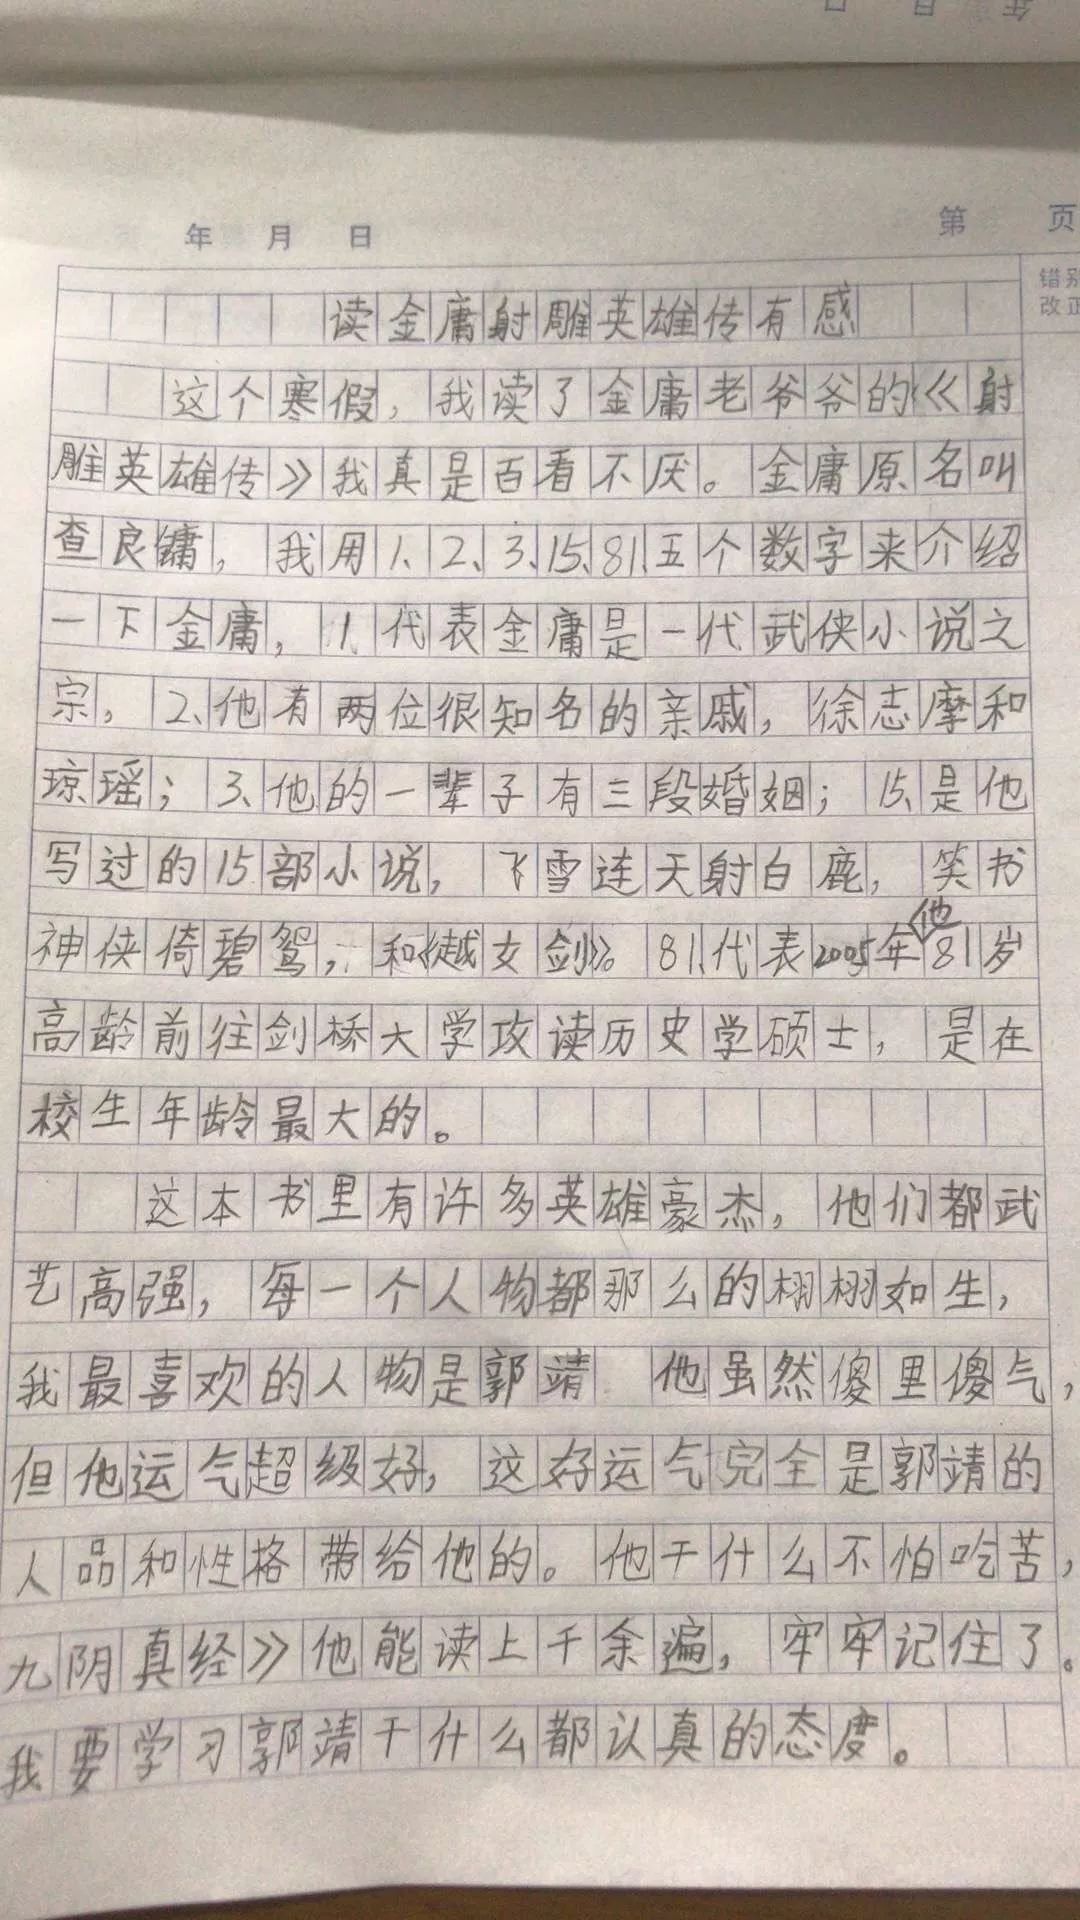 年 月 日
第 页
错别
改正
读金庸射雕英雄传有感
这个寒假，我读了金庸老爷爷的《射
雕英雄传》我真是百看不厌。金庸原名叫
查良镛，我用1、2、3、15、81、五个数字来介绍
一下金庸，1、代表金庸是一代武侠小说之
宗，2、他有两位很知名的亲戚，徐志摩和
琼瑶；3、他的一辈子有三段婚姻；15、是他
写过的15部小说，飞雪连天射白鹿，笑书
神侠倚碧鸳，和《越女剑》。81、代表2005年他81岁
高龄前往剑桥大学攻读历史学硕士，是在
校生年龄最大的。
这本书里有许多英雄豪杰，他们都武
艺高强，每一个人物都那么的栩栩如生，
我最喜欢的人物是郭靖 他虽然傻里傻气，
但他运气超级好，这好运气完全是郭靖的
人品和性格带给他的。他干什么不怕吃苦，
九阴真经》他能读上千余遍，牢牢记住了。
我要学习郭靖干什么都认真的态度。